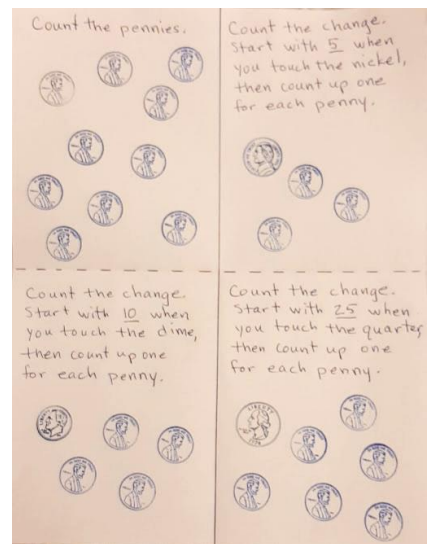 Count the pennies.
Count the change.
Start with 5 when
you touch the nickel,
then count up one
for each penny.
Count the change.
Start with 10 when
you touch the dime,
then count up one
for each penny.
Count the change.
Start with 25 when
you touch the quarter,
then count up one
for each penny.